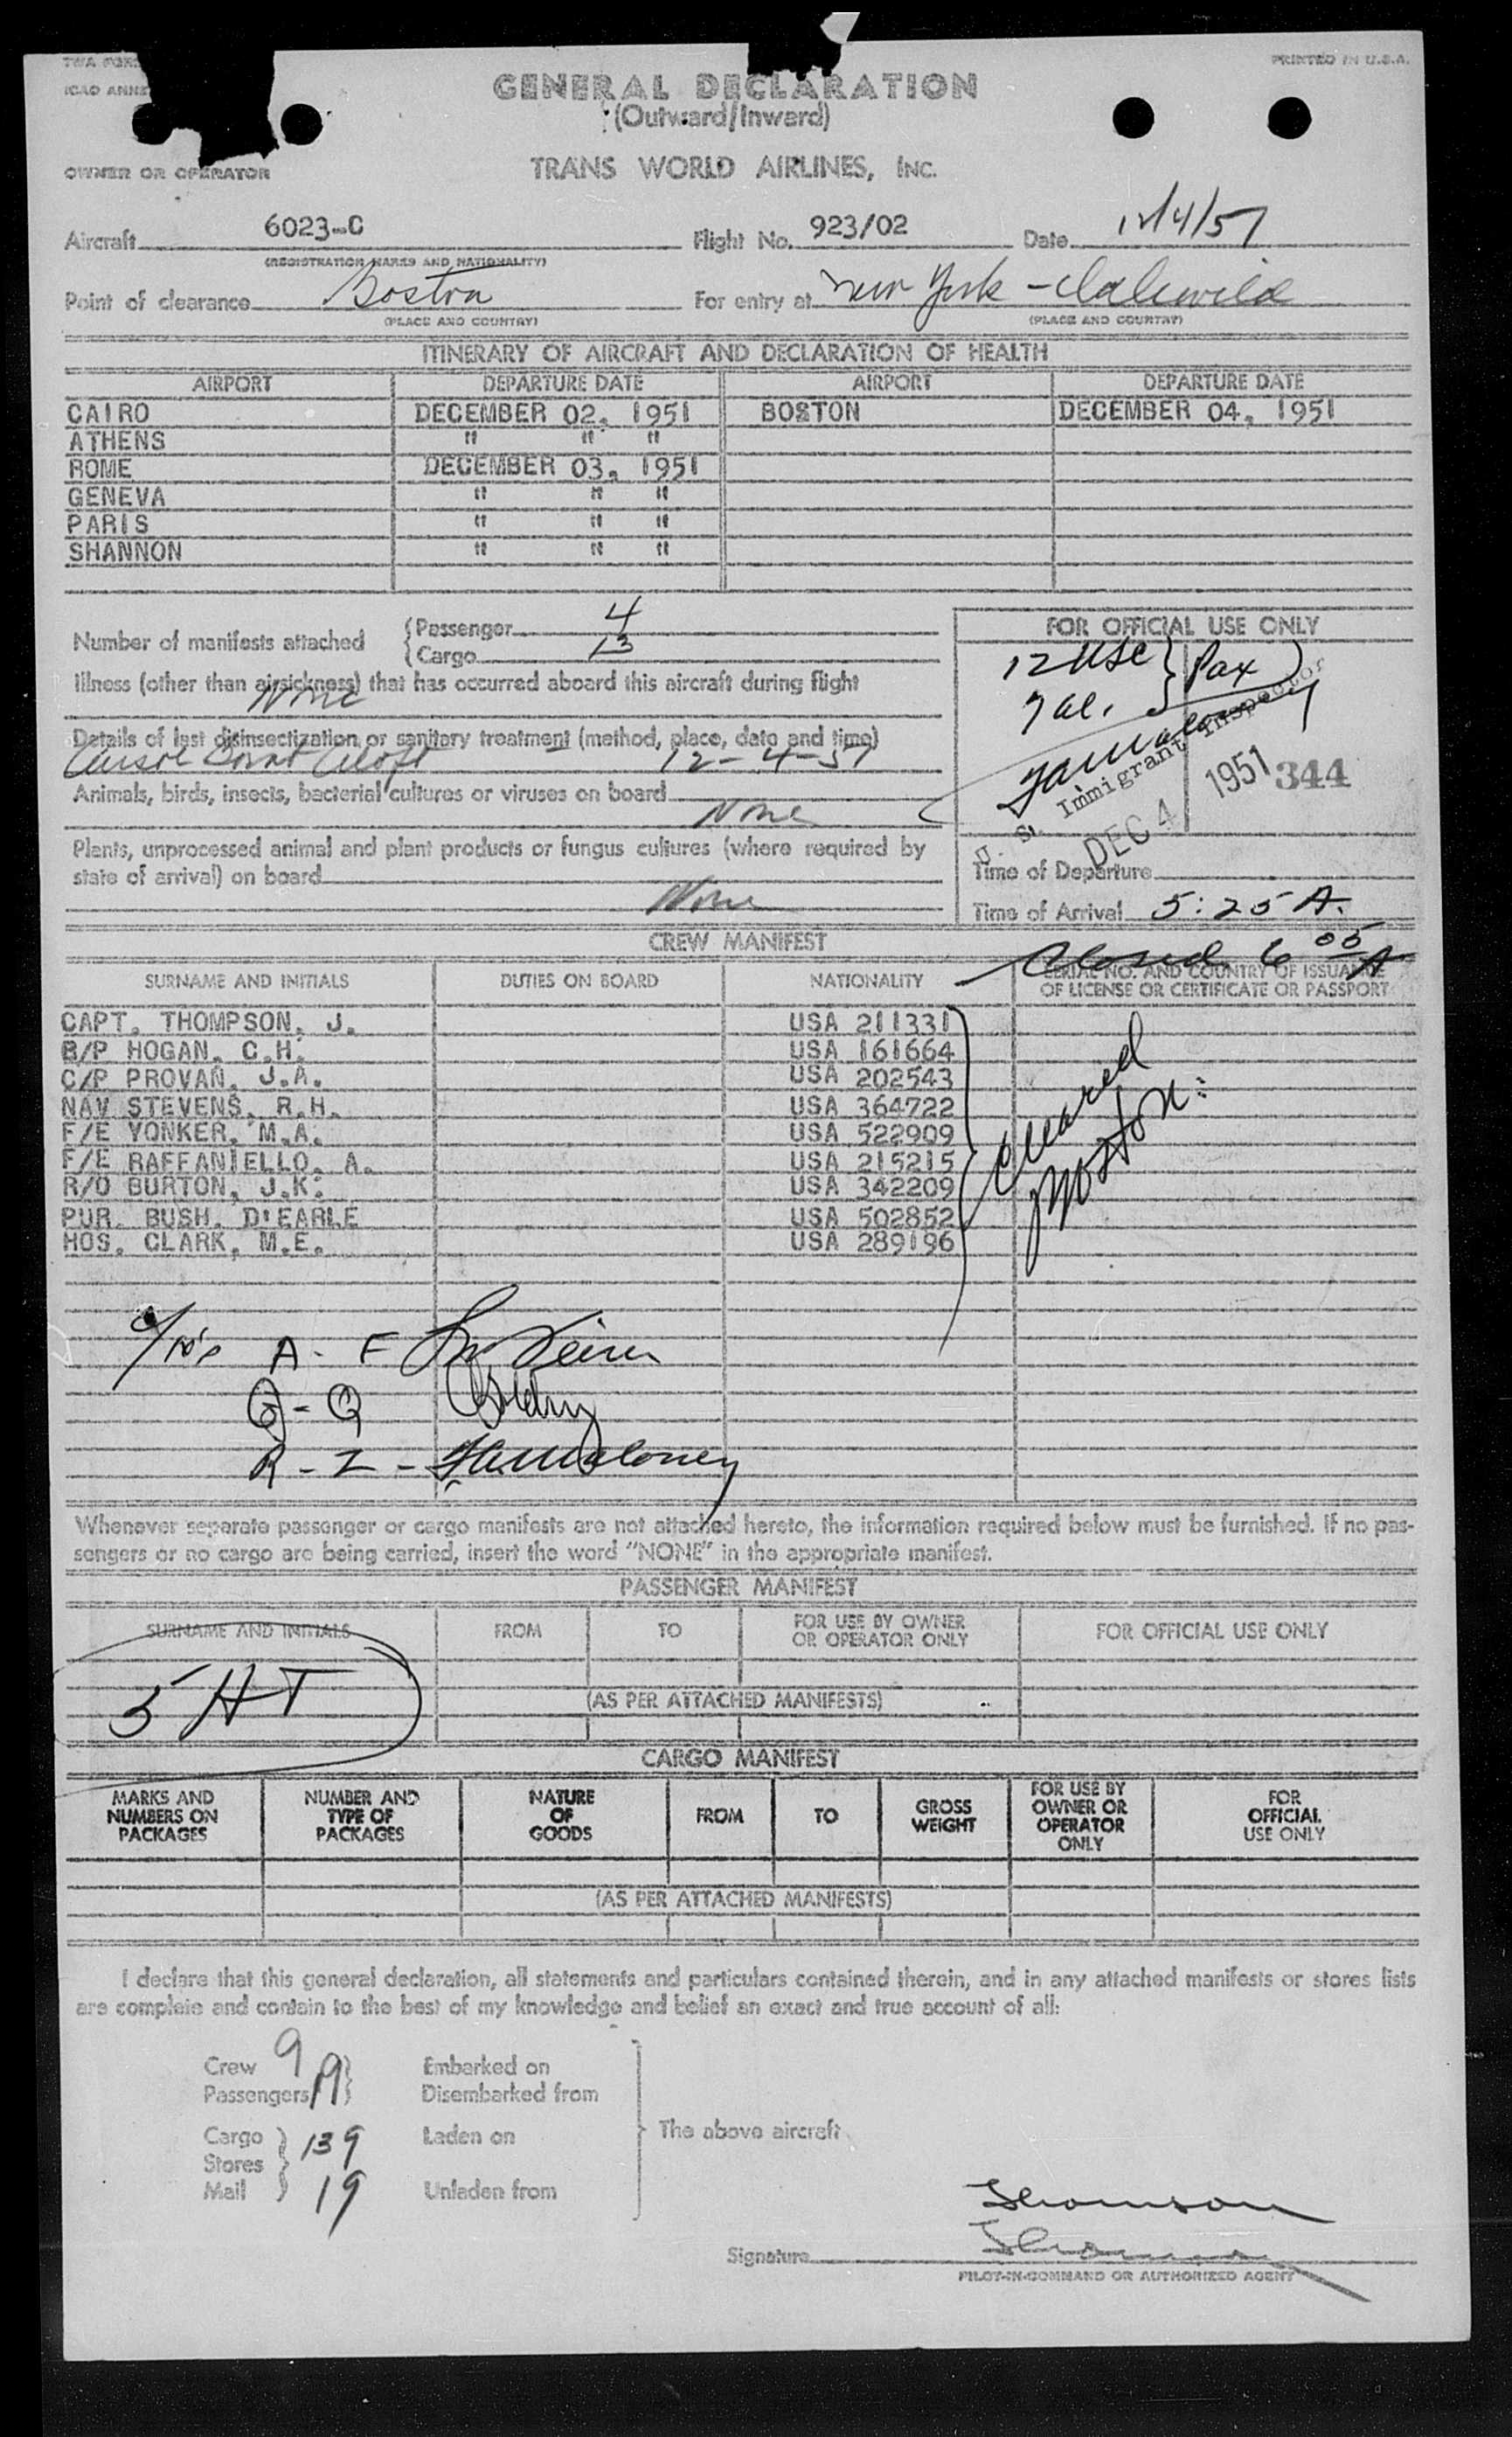 TWA FORM
PRINTED IN U.S.A.
ICAO ANNE
GENERAL DECLARATION
(Outward/Inward)
OWNER OR OPERATOR
TRANS WORLD AIRLINES, INC.
Aircraft 6023-C Flight No. 923/02 Date 12/4/51
(REGISTRATION MARKS AND NATIONALITY)
Point of clearance Boston For entry at New York - Idlewild
(PLACE AND COUNTRY) (PLACE AND COUNTRY)
ITINERARY OF AIRCRAFT AND DECLARATION OF HEALTH
AIRPORT DEPARTURE DATE AIRPORT DEPARTURE DATE
CAIRO DECEMBER 02, 1951 BOSTON DECEMBER 04, 1951
ATHENS " " "
ROME DECEMBER 03, 1951
GENEVA " " "
PARIS " " "
SHANNON " " "
Number of manifests attached { Passenger 4
Cargo 13
FOR OFFICIAL USE ONLY
12 USC } Pax
7 al.
U. S. Immigrant Inspector
DEC 4 1951 344
Illness (other than airsickness) that has occurred aboard this aircraft during flight
None
Details of last disinsectization or sanitary treatment (method, place, date and time)
Aerosol Bomb Aloft 12-4-51
Animals, birds, insects, bacterial cultures or viruses on board
None
Plants, unprocessed animal and plant products or fungus cultures (where required by
state of arrival) on board
None
Time of Departure
Time of Arrival 5:25 A.
Closed 6 05 A
CREW MANIFEST
SURNAME AND INITIALS DUTIES ON BOARD NATIONALITY SERIAL NO. AND COUNTRY OF ISSUANCE
OF LICENSE OR CERTIFICATE OR PASSPORT
CAPT. THOMPSON, J. USA 211331
B/P HOGAN, C.H. USA 161664
C/P PROVAN, J.A. USA 202543
NAV STEVENS, R.H. USA 364722
F/E YONKER, M.A. USA 522909
F/E RAFFANIELLO, A. USA 215215
R/O BURTON, J.K. USA 342209
PUR. BUSH, D'EARLE USA 502852
HOS. CLARK, M.E. USA 289196
Cleared
Boston
A - F
G - Q
R - Z - Maloney
Whenever separate passenger or cargo manifests are not attached hereto, the information required below must be furnished. If no pas-
sengers or no cargo are being carried, insert the word "NONE" in the appropriate manifest.
PASSENGER MANIFEST
SURNAME AND INITIALS FROM TO FOR USE BY OWNER
OR OPERATOR ONLY FOR OFFICIAL USE ONLY
5 HT
(AS PER ATTACHED MANIFESTS)
CARGO MANIFEST
MARKS AND
NUMBERS ON
PACKAGES
NUMBER AND
TYPE OF
PACKAGES
NATURE
OF
GOODS
FROM
TO
GROSS
WEIGHT
FOR USE BY
OWNER OR
OPERATOR
ONLY
FOR
OFFICIAL
USE ONLY
(AS PER ATTACHED MANIFESTS)
I declare that this general declaration, all statements and particulars contained therein, and in any attached manifests or stores lists
are complete and contain to the best of my knowledge and belief an exact and true account of all:
Crew 9 Embarked on
Passengers 19 Disembarked from
The above aircraft
Cargo } 139 Laden on
Stores
Mail 19 Unladen from
Thomson
Signature
PILOT-IN-COMMAND OR AUTHORIZED AGENT